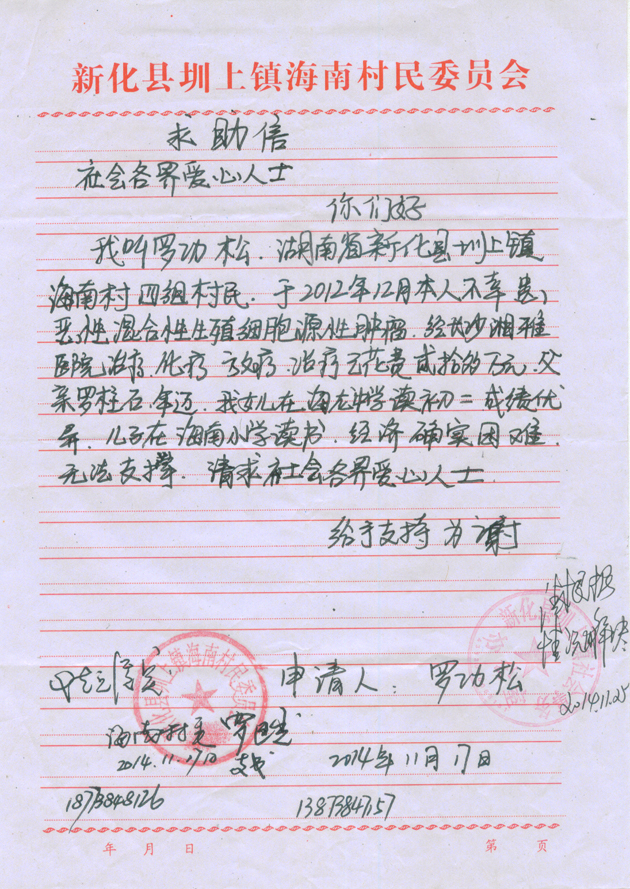 新化县圳上镇海南村民委员会
求助信
社会各界爱心人士
你们好
我叫罗功松，湖南省新化县圳上镇
海南村四组村民，于2012年12月本人不幸患，
恶性混合性生殖细胞源性肿瘤，经长沙湘雅
医院治疗，化疗 放疗，治疗已花费贰拾多万元，父
亲罗柱石，年迈，我女儿在海龙中学读初二 成绩优
异，儿子在海南小学读书，经济确实困难，
无法支撑，请求社会各界爱心人士
给予支持为谢
申请人：罗功松
海南村
2014.11.17日
2014年11月17日
2014.11.25
18773848126
13873847157
年 月 日
第 页